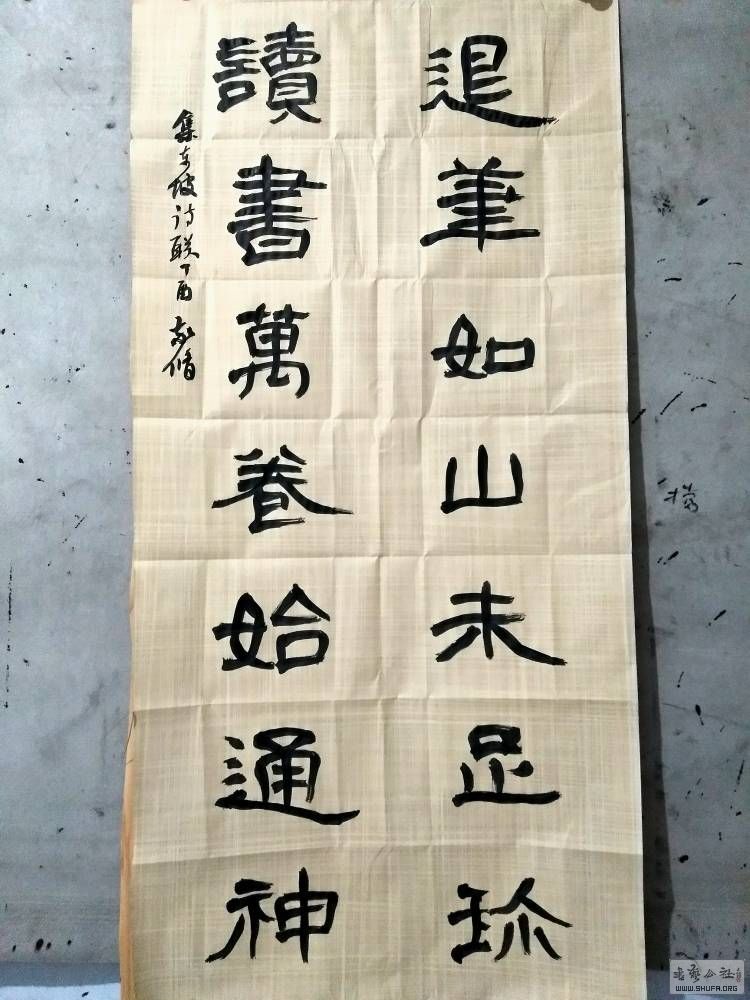 退筆如山未足珍
讀書萬卷始通神
集东坡诗联丁酉
书艺公社
WWW.SHUFA.ORG